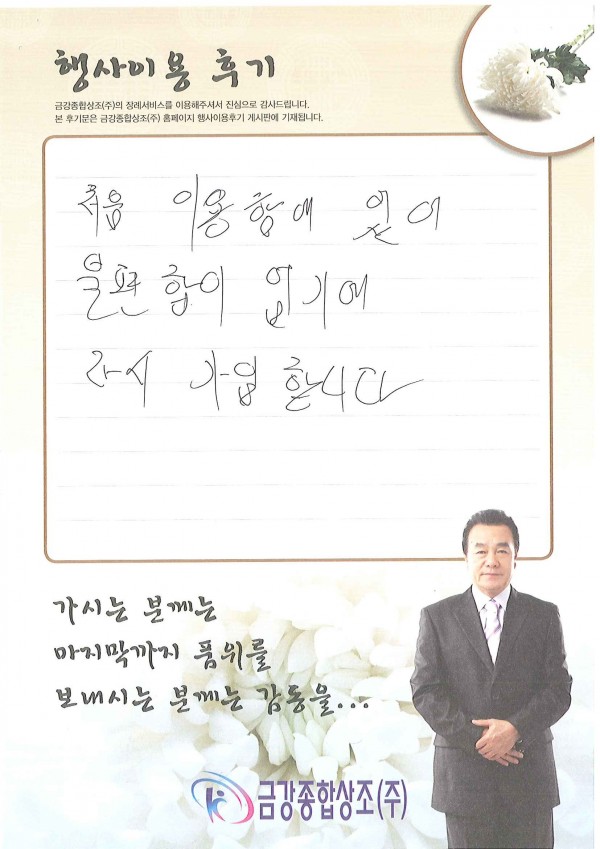 행사이용 후기
금강종합상조(주)의 장례서비스를 이용해주셔서 진심으로 감사드립니다.
본 후기문은 금강종합상조(주) 홈페이지 행사이용후기 게시판에 기재됩니다.
처음 이용함에 있어
불편함이 없기에
다시 가입합니다
가시는 분께는
마지막까지 품위를
보내시는 분께는 감동을...
금강종합상조(주)